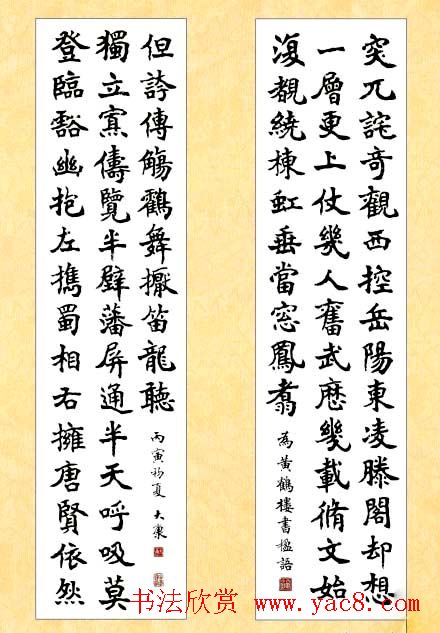 突兀詫奇觀西控岳陽東凌滕閣却想
一層更上仗幾人奮武歷幾載脩文始
復覩繞棟虹垂當窓鳳翥
為黄鶴樓書楹語
登臨豁幽抱左携蜀相右擁唐賢依然
獨立寡儔覽半壁藩屏通半天呼吸莫
但誇傳觴鶴舞擫笛龍聽
丙寅初夏 大康
书法欣赏 www.yac8.com